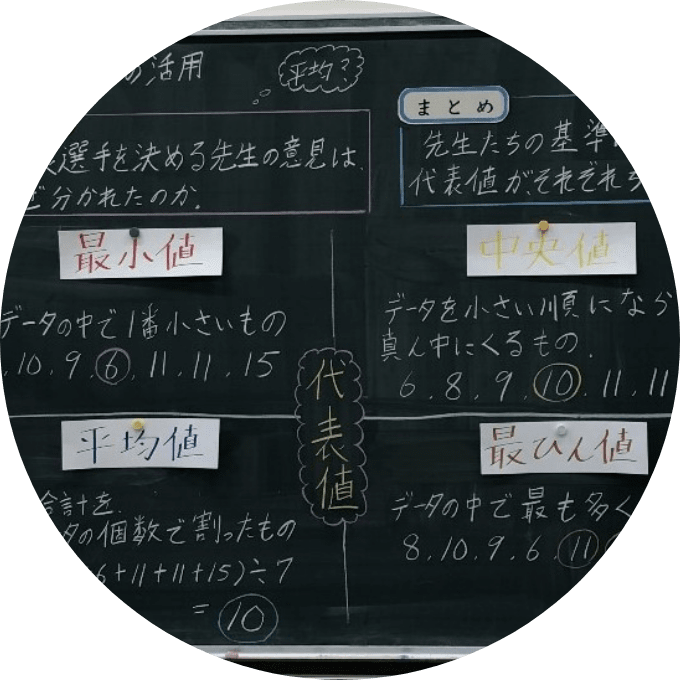 の活用
平均?
選手を決める先生の意見は、
ど分かれたのか。
まとめ
先生たちの基準
代表値がそれぞれ
最小値
データの中で1番小さいもの
.10.9.6.11.11.15
中央値
データを小さい順になら
真ん中にくるもの.
6.8.9.10.11.11
代表値
平均値
合計を
タの個数で割ったもの
6+11+11+15)÷7
=10
最ひん値
データの中で最も多く
8.10.9.6.11